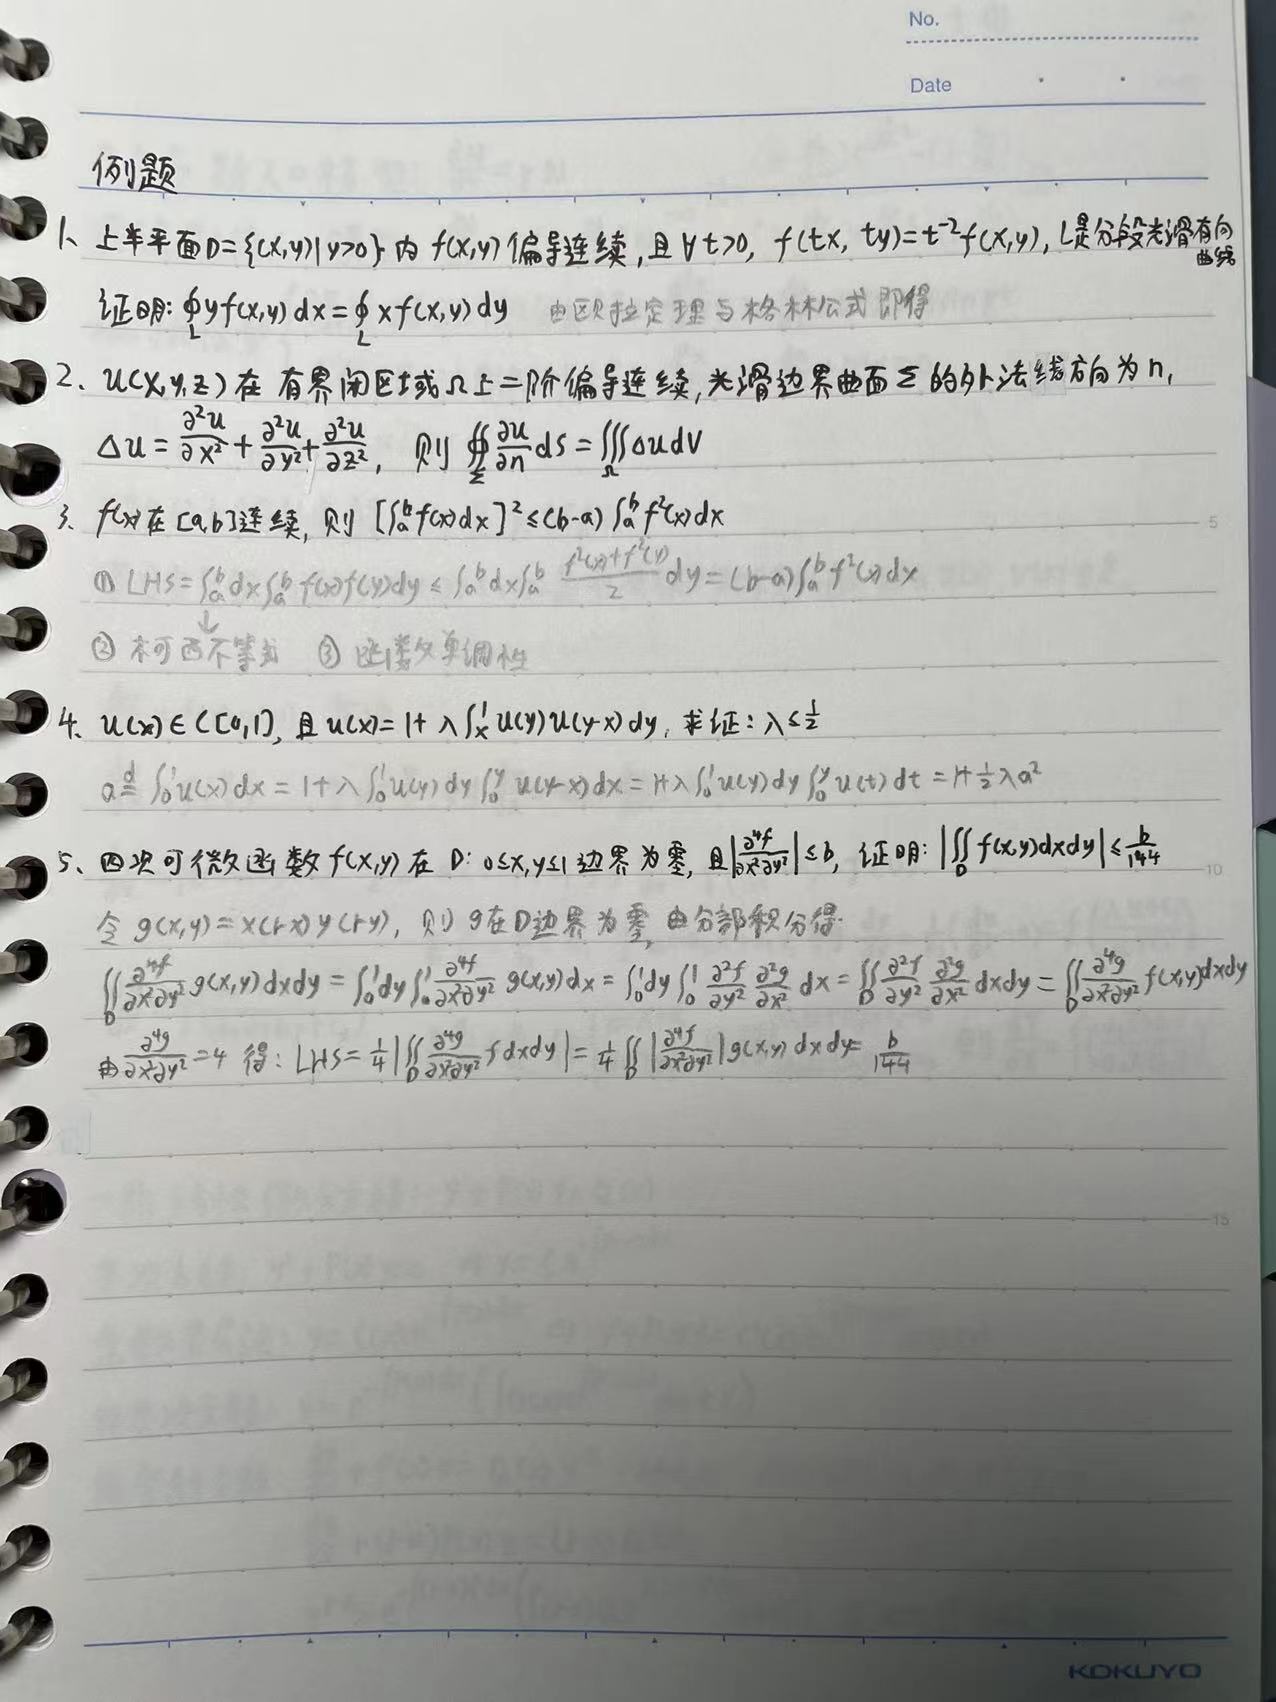 No.
Date
例题
1、上半平面D={(x,y)|y>0}内 f(x,y)偏导连续,且∀t>0, f(tx, ty)=t⁻²f(x,y), L是分段光滑有向曲线
证明: ∮_L yf(x,y)dx=∮_L xf(x,y)dy 由欧拉定理与格林公式即得
2、u(x,y,z)在有界闭区域Ω上二阶偏导连续,光滑边界曲面Σ的外法线方向为n,
Δu = ∂²u/∂x² + ∂²u/∂y² + ∂²u/∂z², 则 ∯_Σ ∂u/∂n dS = ∭_Ω Δu dV
3、f(x)在[a,b]连续,则 [∫_a^b f(x)dx]² ≤ (b-a) ∫_a^b f²(x)dx
① LHS=∫_a^b dx∫_a^b f(x)f(y)dy ≤ ∫_a^b dx∫_a^b (f²(x)+f²(y))/2 dy = (b-a)∫_a^b f²(x)dx
↓
② 柯西不等式 ③ 函数单调性
4、u(x)∈C[0,1],且u(x)=1+λ∫_x^1 u(y)u(y-x)dy, 求证: λ≤1/2
a ≝ ∫_0^1 u(x)dx = 1+λ∫_0^1 u(y)dy∫_0^y u(y-x)dx = 1+λ∫_0^1 u(y)dy∫_0^y u(t)dt = 1+½λa²
5、四次可微函数f(x,y)在D: 0≤x,y≤1边界为零,且|∂⁴f/∂x²∂y²|≤b, 证明: |∬_D f(x,y)dxdy| ≤ b/144
令g(x,y)=x(1-x)y(1-y), 则g在D边界为零,由分部积分得:
∬_D ∂⁴f/∂x²∂y² g(x,y)dxdy = ∫_0^1 dy∫_0^1 ∂⁴f/∂x²∂y² g(x,y)dx = ∫_0^1 dy∫_0^1 ∂²f/∂y² ∂²g/∂x² dx = ∬_D ∂²f/∂y² ∂²g/∂x² dxdy = ∬_D ∂⁴g/∂x²∂y² f(x,y)dxdy
由∂⁴g/∂x²∂y²=4 得: LHS=¼|∬_D ∂⁴g/∂x²∂y² f dxdy| = ¼∬_D |∂⁴f/∂x²∂y²| g(x,y)dxdy = b/144
5
10
15
KOKUYO